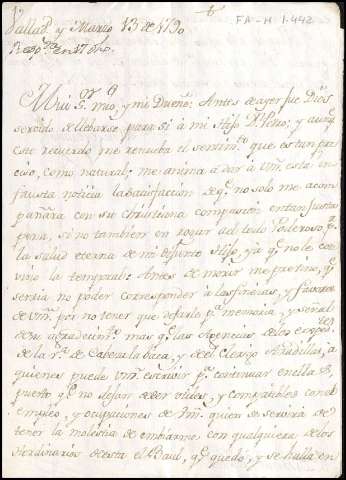 Vallad. y Marzo 13 de 1790
FA-H 1.442
Respda en 17 dho.
Mui Sor mio, y mi Dueño: Antes de ayer fue Dios
servido de llebarse para sí à mi Hijo Dn Pedro; y aunqe
este recuerdo me renueba el sentimto que es tan pre
ciso, como natural; me anima à dar à Vm. esta in
fausta noticia la satisfacción de qe no solo me acom
pañara con su christiana compasion en tan justa
pena, si no tambien en rogar del todo Poderoso pr
la salud eterna de mi difunto Hijo, ya qe no le con
vino la temporal: Antes de morir me previno, qe
sentia no poder corresponder à las finezas, y favores
de Vm. por no tener que dejarle pr memoria, y señal
de su agradecimto mas qe las Agencias de los
de la ra de Cabeza la baca, y del Clero
quienes puede Vm. escribir pa continuar en ellas,
puesto qe no dejan de ser utiles, y compatibles con el
empleo, y ocupaciones de Vm. quien se servirá de
tener la molestia de embiarme con qualquiera de los
Hordinarios de esta el Baul, qe quedó, y se halla en